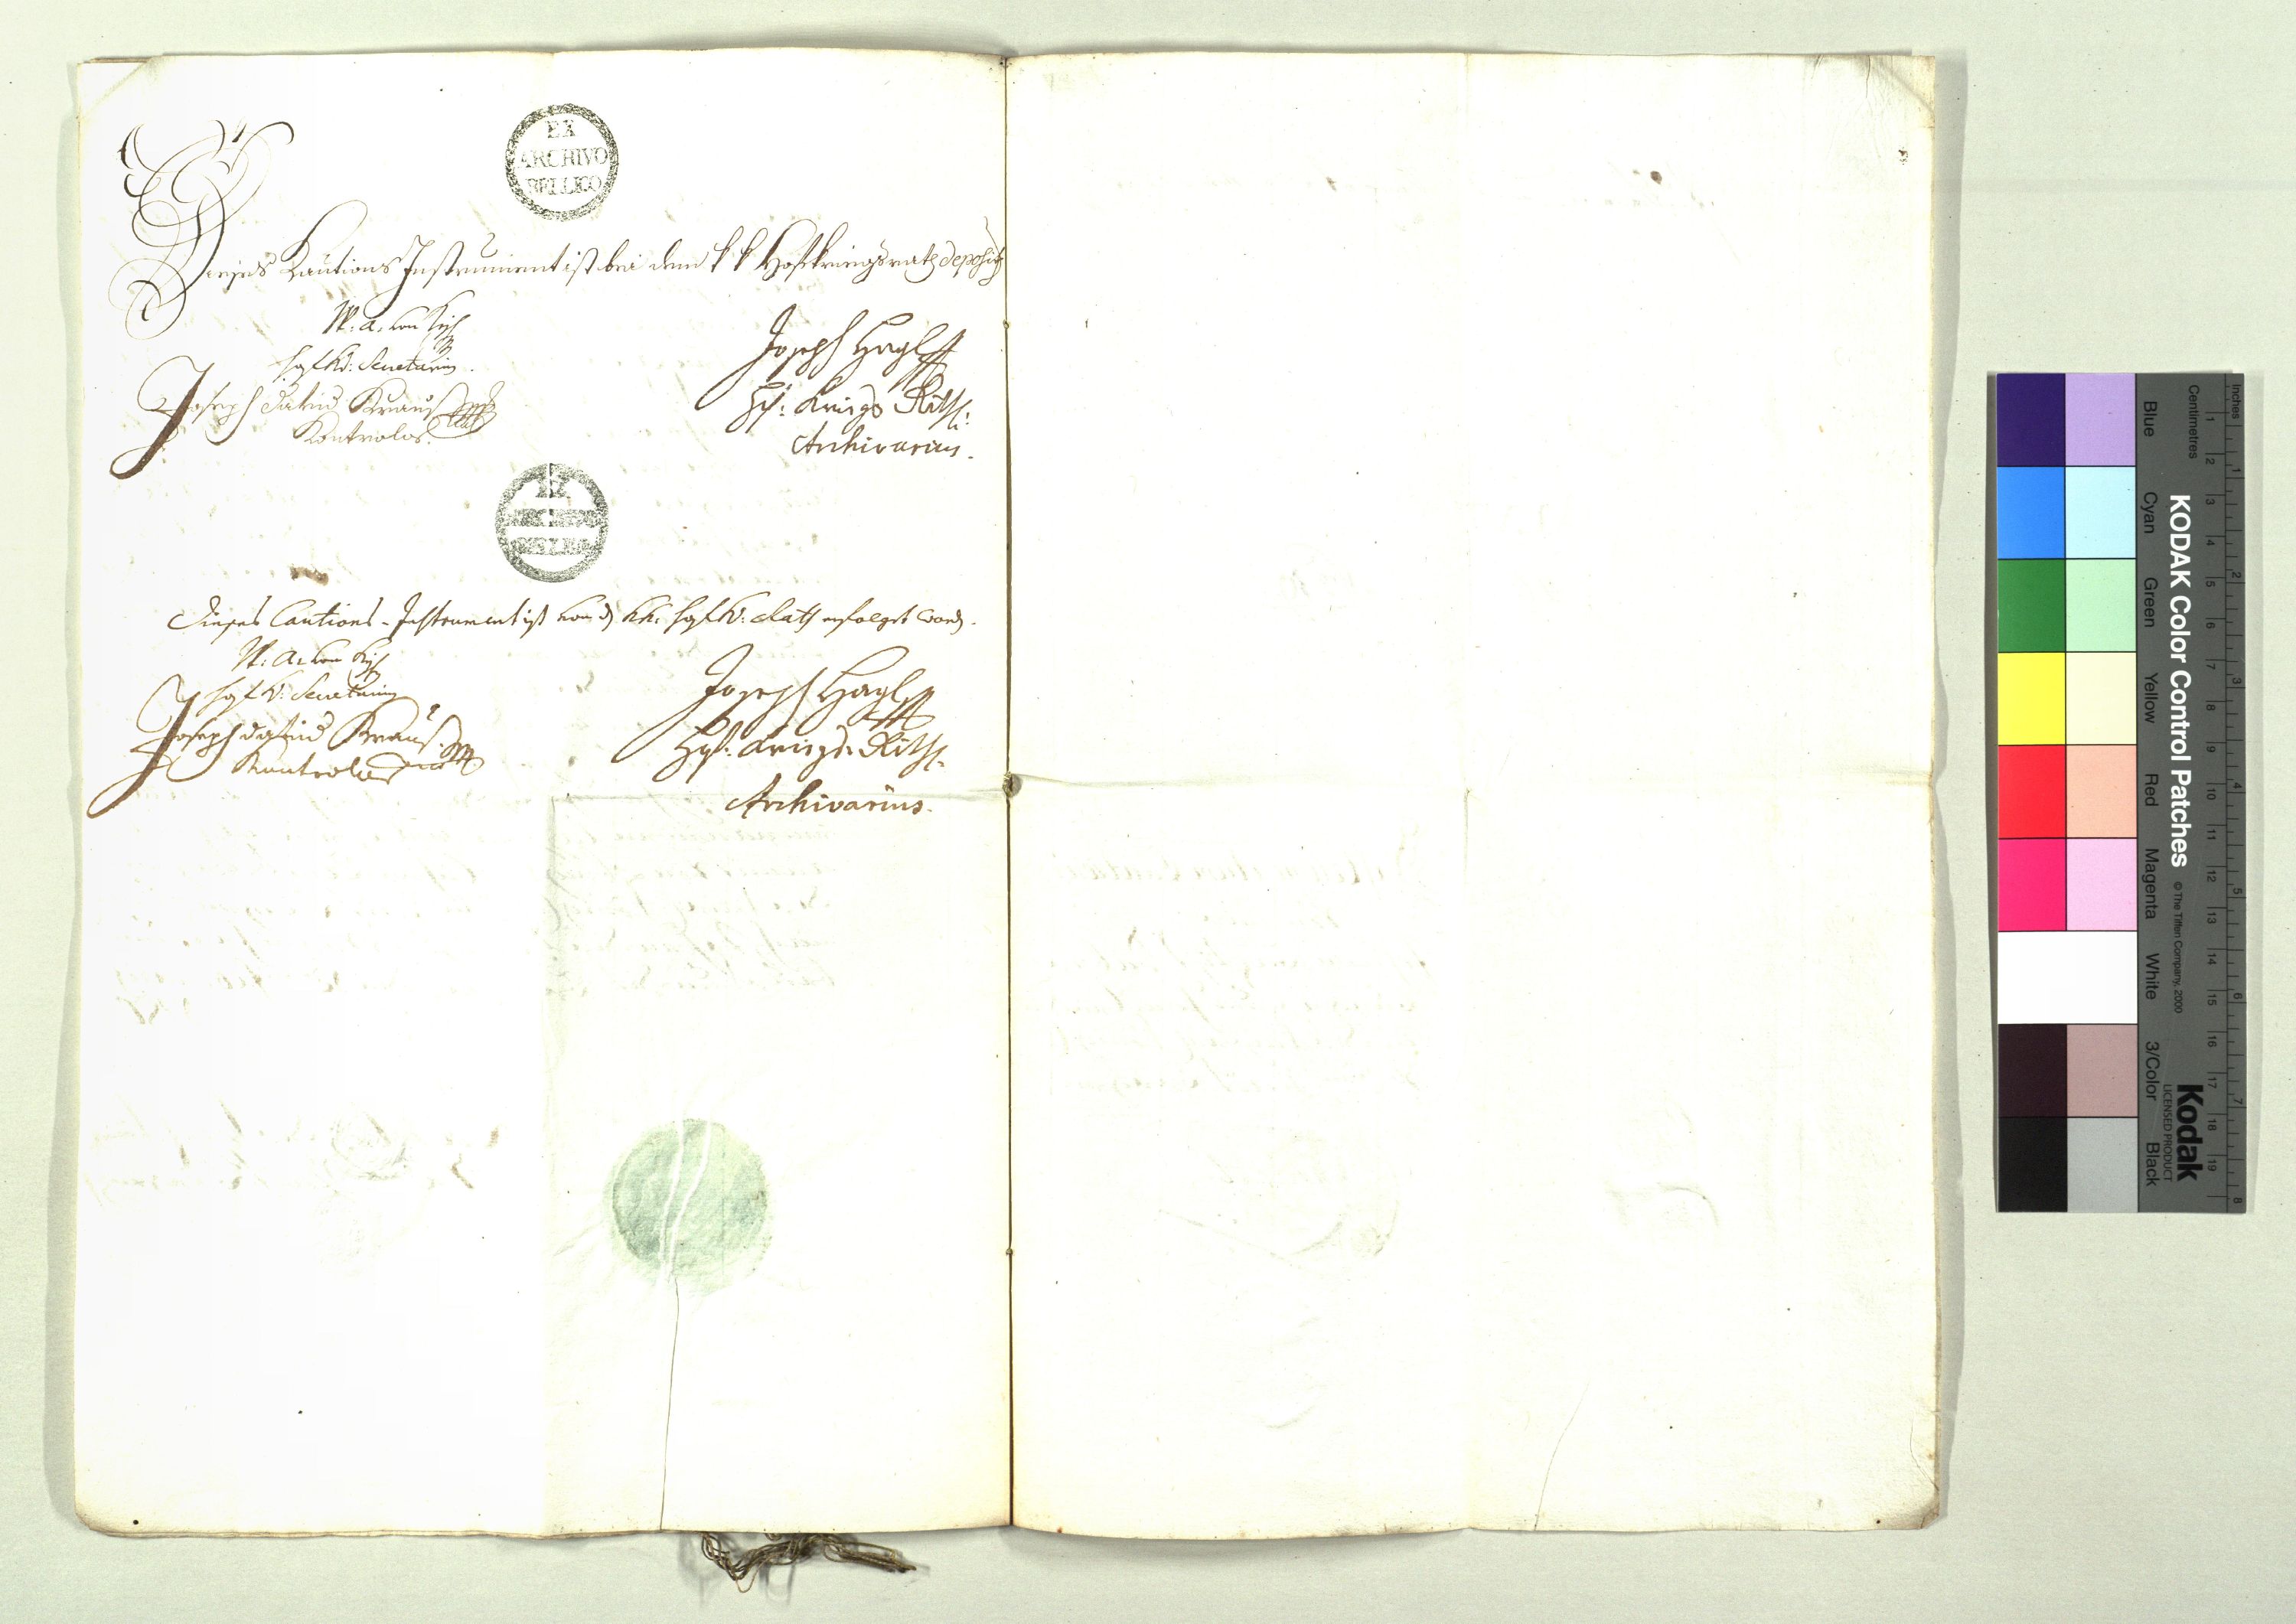 EX
ARCHIVO
BELLICO
Dieses Kautions Instrument ist bei dem k k Hofkriegsrath deposit
W: A: von
hofkr: Secretarius.
Joseph Hagl
Joseph Kraus
Hof: Kriegs Räthl:
Kontrolor.
Archivarius.
EX
ARCHIVO
BELLICO
dieses Cautions-Instrument ist von d kk: hofkr: Rath erfolget word.
W: A: von
hofkr: Secretarius
Joseph Hagl
Joseph Kraus
Hof: Kriegs Räthl.
Kontrolor
Archivarius.
KODAK Color Control Patches
© The Tiffen Company, 2000
Kodak
LICENSED PRODUCT
Inches
Centimetres
1 2 3 4 5 6 7 8
1 2 3 4 5 6 7 8 9 10 11 12 13 14 15 16 17 18 19
Blue
Cyan
Green
Yellow
Red
Magenta
White
3/Color
Black